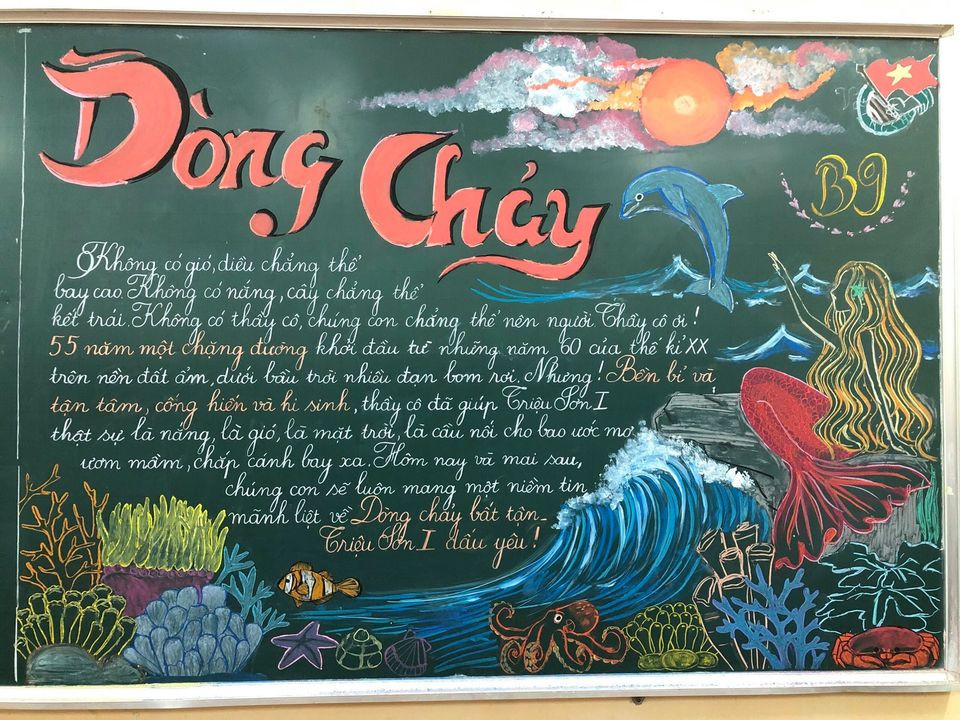 Dòng Chảy
B9
Không có gió, diều chẳng thể
bay cao. Không có nắng, cây chẳng thể
kết trái. Không có thầy cô, chúng con chẳng thể nên người. Thầy cô ơi!
55 năm một chặng đường khởi đầu từ những năm 60 của thế kỉ XX
trên nền đất ẩm, dưới bầu trời nhiều đạn bom rơi. Nhưng! Bền bỉ và
tận tâm, cống hiến và hi sinh, thầy cô đã giúp Triệu Sơn I
thật sự là nắng, là gió, là mặt trời, là cầu nối cho bao ước mơ
ươm mầm, chắp cánh bay xa. Hôm nay và mai sau,
chúng con sẽ luôn mang một niềm tin
mãnh liệt về Dòng chảy bất tận_
Triệu Sơn I dấu yêu!